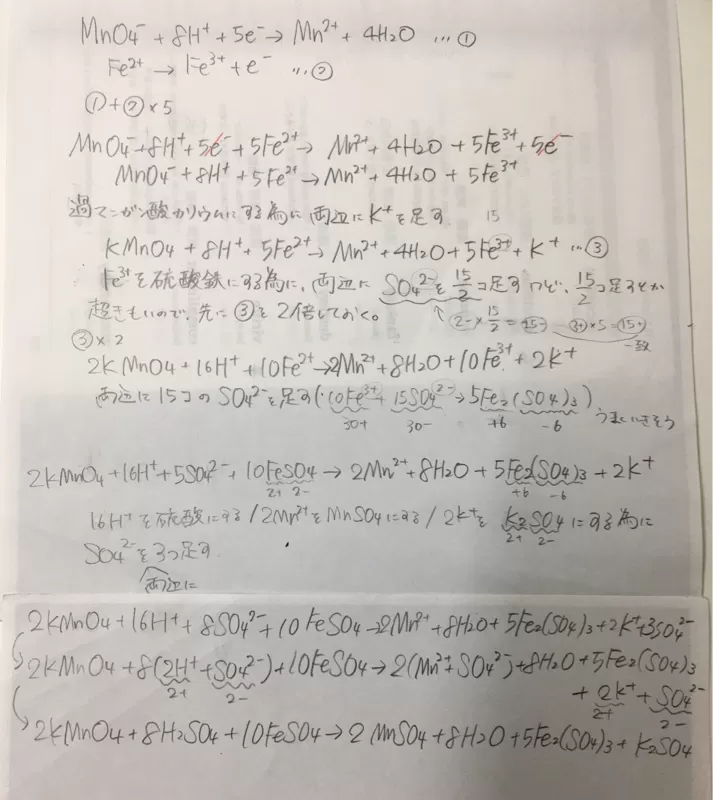 MnO₄⁻ + 8H⁺ + 5e⁻ → Mn²⁺ + 4H₂O …①
Fe²⁺ → Fe³⁺ + e⁻ …②
①+②×5
MnO₄⁻+8H⁺+5e⁻+5Fe²⁺→ Mn²⁺+4H₂O+5Fe³⁺+5e⁻
MnO₄⁻+8H⁺+5Fe²⁺→Mn²⁺+4H₂O+5Fe³⁺
過マンガン酸カリウムにする為に両辺にK⁺を足す 15
KMnO₄+8H⁺+5Fe²⁺→Mn²⁺+4H₂O+5Fe³⁺+K⁺ …③
Fe³⁺を硫酸鉄にする為に、両辺に SO₄²⁻を 15/2 コ足す けど、15/2 コ足すとか
超きもいので、先に③を2倍しておく。 ↑ 2-×15/2=15- 3+×5=15+
一致
③×2
2KMnO₄+16H⁺+10Fe²⁺→2Mn²⁺+8H₂O+10Fe³⁺+2K⁺
両辺に15コのSO₄²⁻を足す(∵10Fe³⁺+15SO₄²⁻→5Fe₂(SO₄)₃) うまくいきそう
30+ 30- +6 -6
2KMnO₄+16H⁺+5SO₄²⁻+10FeSO₄→2Mn²⁺+8H₂O+5Fe₂(SO₄)₃+2K⁺
2+ 2- +6 -6
16H⁺を硫酸にする/2Mn²⁺をMnSO₄にする/2K⁺を K₂SO₄にする為に
2+ 2-
SO₄²⁻を3つ足す
両辺に
2KMnO₄+16H⁺+8SO₄²⁻+10FeSO₄→2Mn²⁺+8H₂O+5Fe₂(SO₄)₃+2K⁺+3SO₄²⁻
2KMnO₄+8(2H⁺+SO₄²⁻)+10FeSO₄→2(Mn²⁺+SO₄²⁻)+8H₂O+5Fe₂(SO₄)₃
2+ 2- +2K⁺+SO₄²⁻
2+ 2-
2KMnO₄+8H₂SO₄+10FeSO₄→2MnSO₄+8H₂O+5Fe₂(SO₄)₃+K₂SO₄